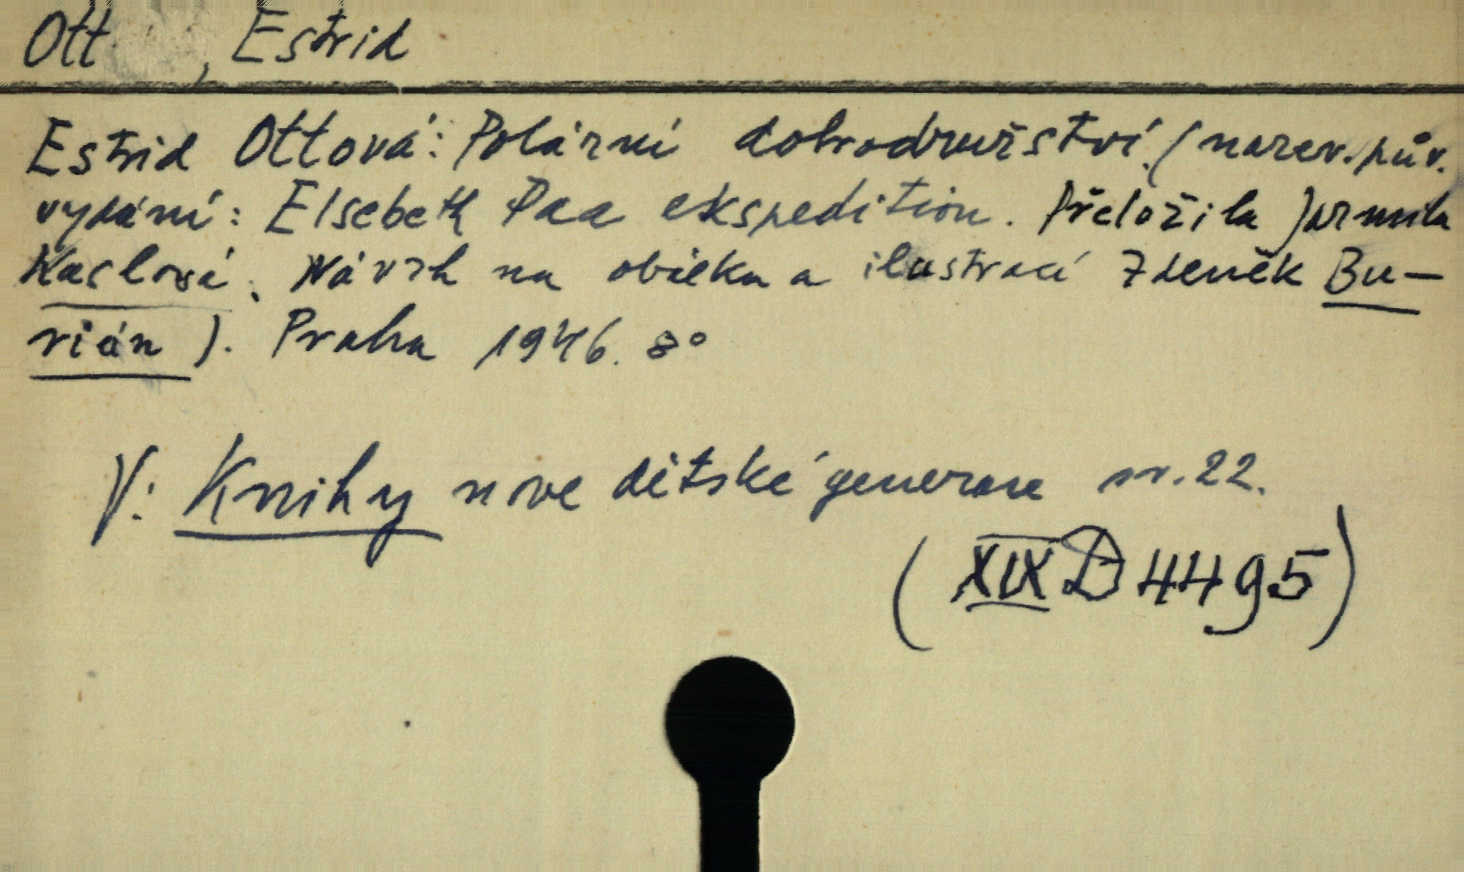 Ott , Estrid
Estrid Ottová: Polární dobrodružství. (název. pův.
vydání: Elsebeth Paa ekspedition. Přeložila Jarmila
Kaslová. Návrh na obálku a ilustrací Zdeněk Bu-
rián). Praha 1946. 8°
V: Knihy nové dětské generace sv. 22.
(XIX D 4495)